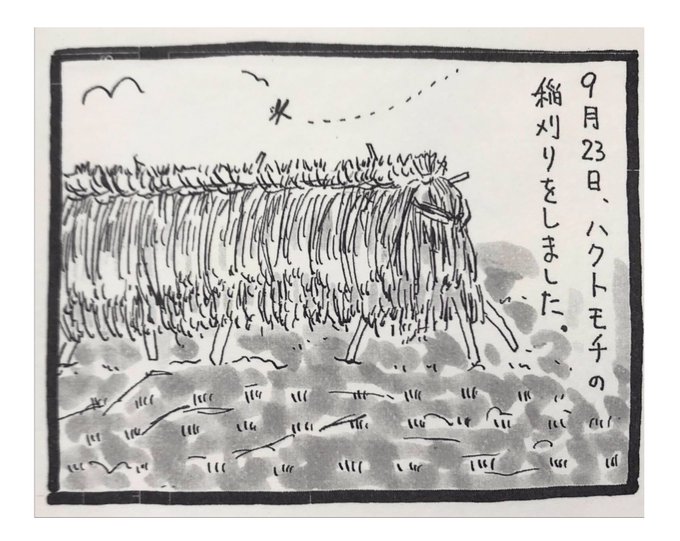 9月23日、ハクトモチの
稲刈りをしました.